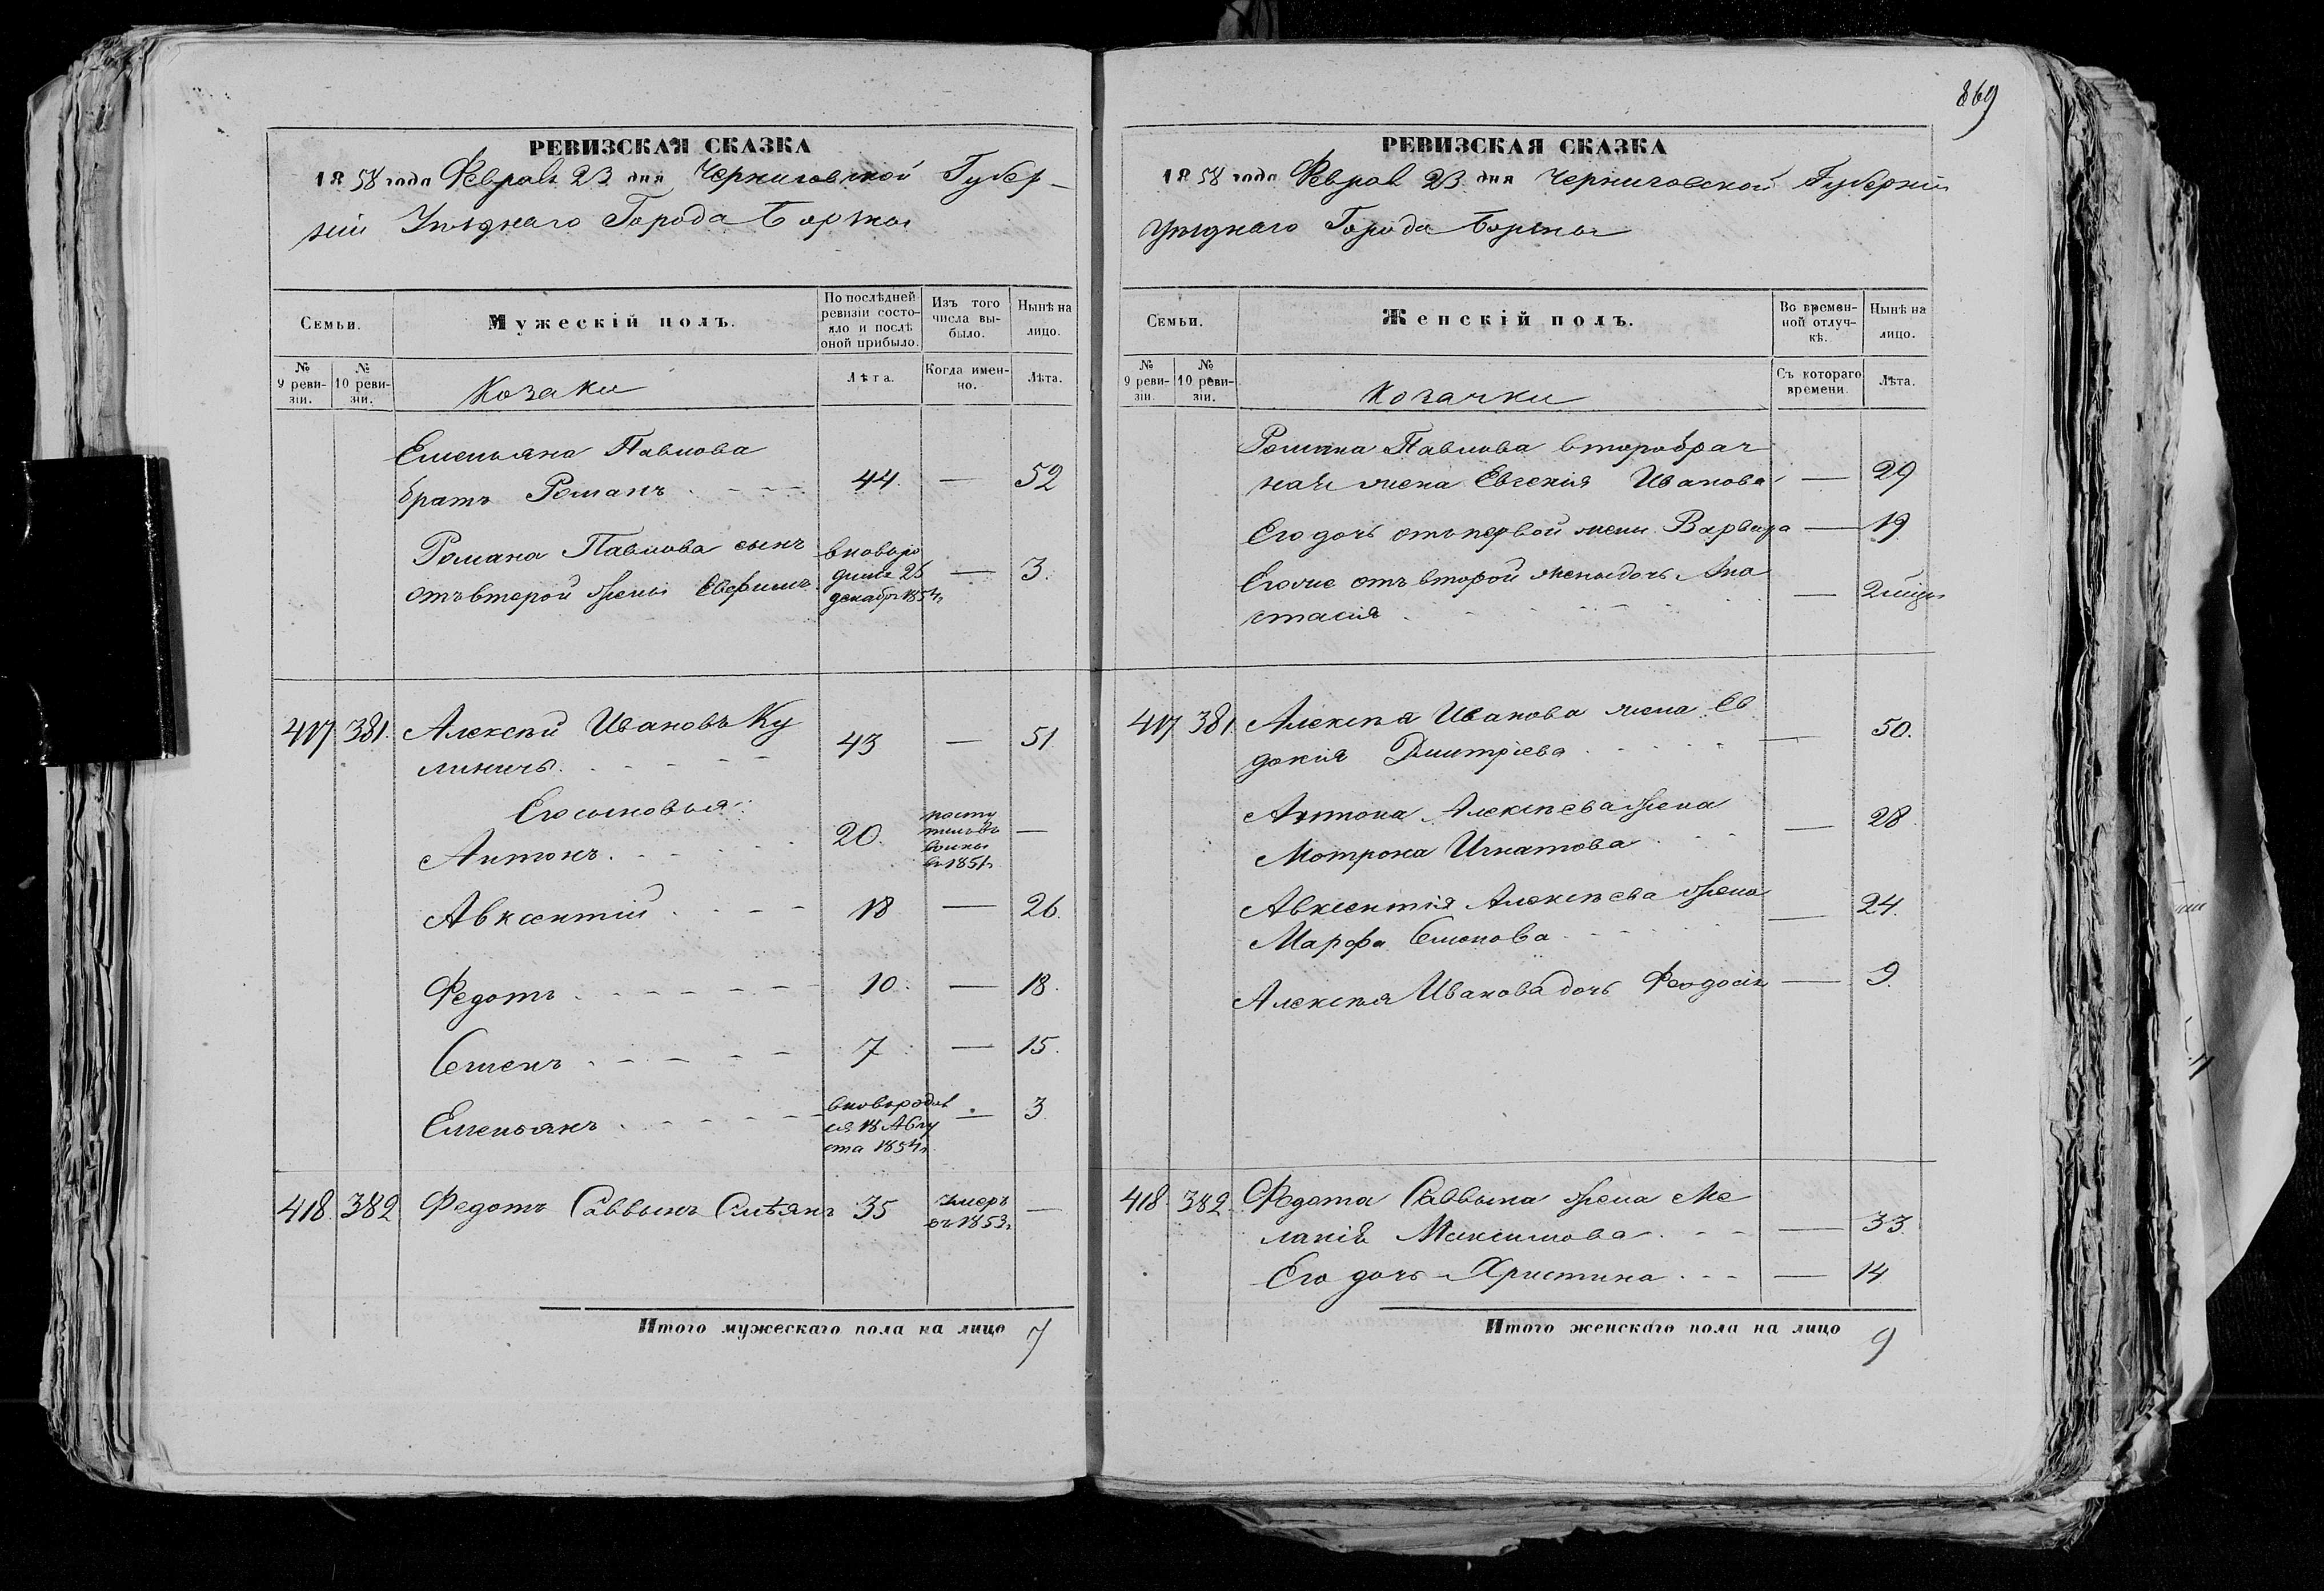 РЕВИЗСКАЯ СКАЗКА
1858 года Феврал 23 дня Черниговской Губер-
ніи Уѣзднаго Города Борзны
Семьи.
Мужескій полъ.
По послѣдней ревизіи состояло и послѣ оной прибыло.
Изъ того числа выбыло.
Нынѣ на лицо.
№ 9 ревизіи.
№ 10 ревизіи.
Козаки
Лѣта.
Когда именно.
Лѣта.
Емельяна Павлова
братъ Романъ 44. — 52
Романа Павлова сынъ
отъ второй жены Евфимъ
вновьро
дился 25
декабр 1854г
— 3.
417 381. Алексѣй Ивановъ Ку
линичъ 43 — 51.
Его сыновья:
Антонъ 20.
посту
пилъ въ
воины
въ 1851г
—
Авксентій 18 — 26.
Федотъ 10. — 18.
Семенъ 7. — 15.
Емельянъ
вновьродил
ся 18 Авгу
ста 1854г.
— 3.
418. 382. Федотъ Саввынъ 35
умеръ
въ 1853г.
—
Итого мужескаго пола на лицо 7
869
РЕВИЗСКАЯ СКАЗКА
1858 года Феврал 23 дня Черниговской Губерніи
Уѣзднаго Города Борзны
Семьи.
Женскій полъ.
Во временной отлучкѣ.
Нынѣ на лицо.
№ 9 ревизіи.
№ 10 ревизіи.
Козачки
Съ котораго времени.
Лѣта.
Романа Павлова второбрач
ная жена Евгенія Иванова — 29
Его дочь отъ первой жены Варвара — 19.
Его же отъ второй жены дочь Ана
стасия — 2
417 381. Алексѣя Иванова жена Ев
докия Дмитріева — 50.
Антона Алексѣева жена
Мотрона Игнатова — 28
Авксентія Алексѣева жена
Марфа Семенова — 24.
Алексѣя Иванова дочь Феодосія — 9.
418. 382. Федота Саввына жена Ме
ланія Максимова — 33.
Его дочь Христина — 14
Итого женскаго пола на лицо 9